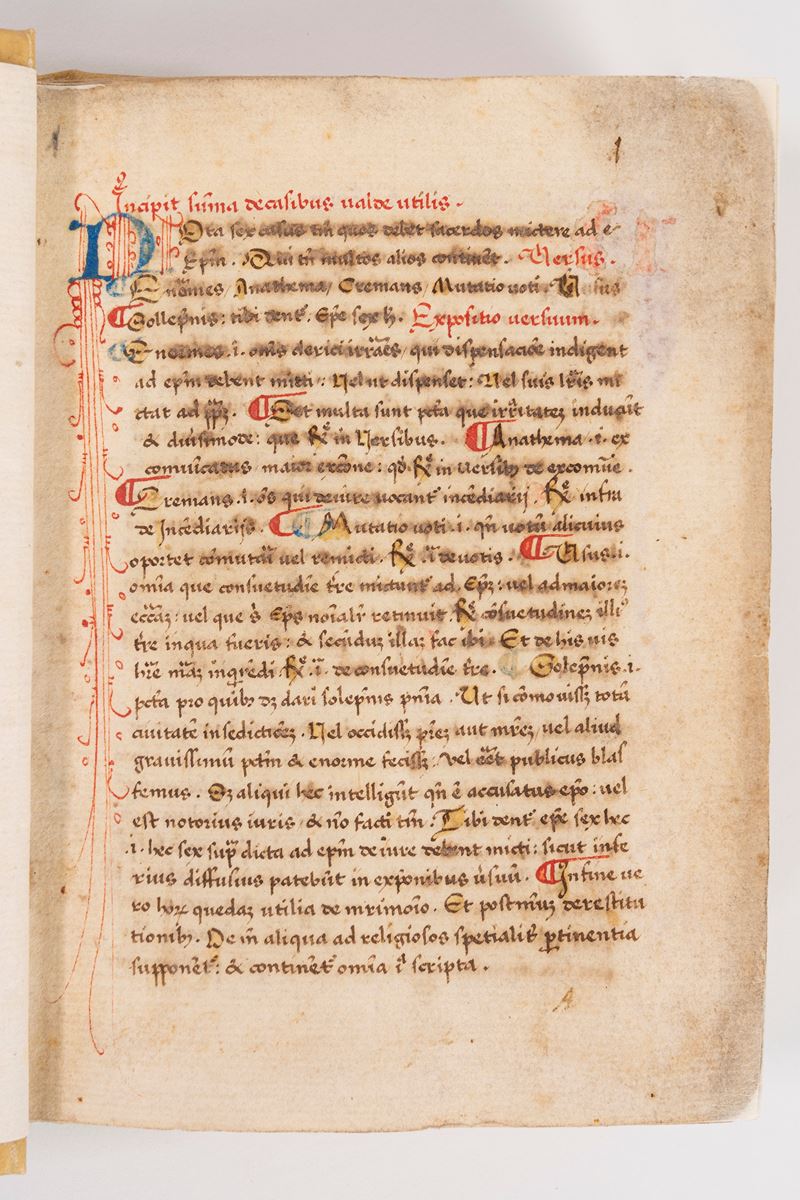 1
Incipit sūma de casibus valde utilis.
Nota sex casus tm̄ quos debet sacerdos mictere ad e
Ep̄m. Qui tn̄ multos alios continēt. Versus.
Enormes, Anathema, Cremans, Mutatio voti. Usus
Sollepnis: tibi dent, Epe sex h. Expositio versuum.
Enormes .i. om̄s clerici irrāes, qui dispensacōe indigent
ad ep̄m debent micti: Vel ut dispenset: Vel suis lr̄is mi
ctat ad pp̄. Et multa sunt pcta que irr̄itatez inducūt
& diuisimode: que Re in Versibus. Anathema .i. ex
comūicatus maiori excōne: qd Re in versib de excomūe.
Cremans .i. oēs qui de iure vocant incēdiarij. Re infra
de Incēdiarijs. Mutatio voti .i. qn̄ votū alicuius
oportet cōmutari vel remicti. Re de votis. Usus .i.
omīa que consuetudīe tr̄e mictunt ad Ep̄z: vel ad maiorez
eccāz: vel que s Ep̄s noīalr retinuit. Re cōsuetudinez illi
tr̄e in qua fueris: & secūduz illaz fac ibi. Et de his vis
hr̄e mām inqredi Re de consuetudīe tr̄e. Solepnis .i.
pcta pro quib dz dari solepnis pn̄ia. Ut si cōmovissz totā
civitatē in sedictiōez. Vel occidissz pr̄ez aut mr̄ez, vel aliud
gravissimū pctm & enorme fecissz: vel eēt publicus blas
femus. Sz aliqui hec intelligūt qn̄ ē accusatus ep̄o: vel
est notorius iuris, & nō facti tm̄. Tibi dent ep̄e sex hec
.i. hec sex sup dicta ad ep̄m de iure debent micti: sicut infe
rius diffusius patebūt in expōnibus v̄suū. In fine ve
ro hor quedaz utilia de mr̄imoīo. Et postmūz de restitu
tionib. De in aliqua ad religiosos spetialit pertinentia
supponēt: & continēt omīa scripta.
A